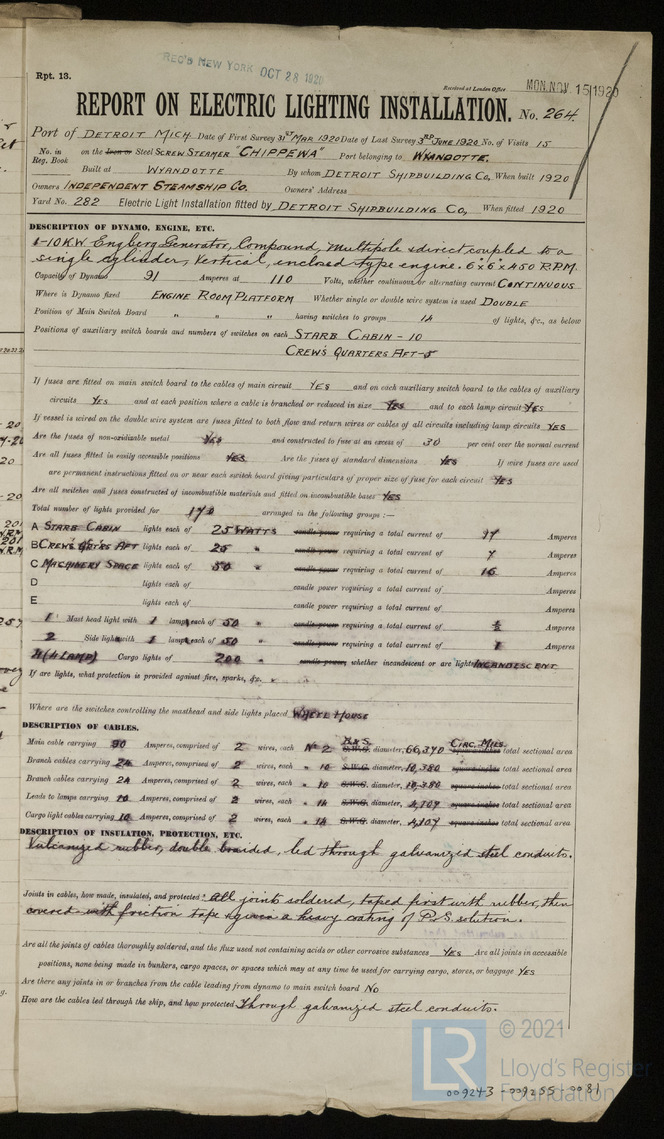 REC'D NEW YORK OCT 28 1920
Rpt. 13.
Received at London Office MON. NOV 15 1920
REPORT ON ELECTRIC LIGHTING INSTALLATION. No. 264.
Port of DETROIT MICH. Date of First Survey 31ST MAR 1920 Date of Last Survey 3RD JUNE 1920 No. of Visits 15
No. in Reg. Book on the Iron or Steel SCREW STEAMER "CHIPPEWA" Port belonging to WYANDOTTE.
Built at WYANDOTTE By whom DETROIT SHIPBUILDING CO, When built 1920
Owners INDEPENDENT STEAMSHIP CO. Owners' Address
Yard No. 282 Electric Light Installation fitted by DETROIT SHIPBUILDING CO, When fitted 1920
DESCRIPTION OF DYNAMO, ENGINE, ETC.
1-10 K.W. Engberg Generator, Compound, multipole & direct coupled to a
single cylinder, vertical, enclosed type engine. 6"x6"x450 R.P.M.
Capacity of Dynamo 91 Amperes at 110 Volts, whether continuous or alternating current CONTINUOUS
Where is Dynamo fixed ENGINE ROOM PLATFORM Whether single or double wire system is used DOUBLE
Position of Main Switch Board " " " having switches to groups 14 of lights, &c., as below
Positions of auxiliary switch boards and numbers of switches on each STARB CABIN - 10
CREW'S QUARTERS AFT-5
If fuses are fitted on main switch board to the cables of main circuit YES and on each auxiliary switch board to the cables of auxiliary
circuits YES and at each position where a cable is branched or reduced in size YES and to each lamp circuit YES
If vessel is wired on the double wire system are fuses fitted to both flow and return wires or cables of all circuits including lamp circuits YES
Are the fuses of non-oxidizable metal YES and constructed to fuse at an excess of 30 per cent over the normal current
Are all fuses fitted in easily accessible positions YES Are the fuses of standard dimensions YES If wire fuses are used
are permanent instructions fitted on or near each switch board giving particulars of proper size of fuse for each circuit YES
Are all switches and fuses constructed of incombustible materials and fitted on incombustible bases YES
Total number of lights provided for 170 arranged in the following groups :—
A STARB CABIN lights each of 25 WATTS candle power requiring a total current of 17 Amperes
B CREW'S QRT'RS AFT lights each of 25 " candle power requiring a total current of 7 Amperes
C MACHINERY SPACE lights each of 50 " candle power requiring a total current of 16 Amperes
D lights each of candle power requiring a total current of Amperes
E lights each of candle power requiring a total current of Amperes
1 Mast head light with 1 lamp each of 50 " candle power requiring a total current of ½ Amperes
2 Side light with 1 lamp each of 50 " candle power requiring a total current of 1 Amperes
(4 LAMP) Cargo lights of 200 " candle power, whether incandescent or arc lights INCANDESCENT
If arc lights, what protection is provided against fire, sparks, &c.
Where are the switches controlling the masthead and side lights placed WHEEL HOUSE
DESCRIPTION OF CABLES.
Main cable carrying 90 Amperes, comprised of 2 wires, each No 2 B & S S.W.G. diameter, 66,370 CIRC. MILS. square inches total sectional area
Branch cables carrying 24 Amperes, comprised of 2 wires, each " 10 S.W.G. diameter, 10,380 square inches total sectional area
Branch cables carrying 24 Amperes, comprised of 2 wires, each " 10 S.W.G. diameter, 10,380 square inches total sectional area
Leads to lamps carrying 10 Amperes, comprised of 2 wires, each " 14 S.W.G. diameter, 4,107 square inches total sectional area
Cargo light cables carrying 10 Amperes, comprised of 2 wires, each " 14 S.W.G. diameter, 4,107 square inches total sectional area
DESCRIPTION OF INSULATION, PROTECTION, ETC.
Vulcanized rubber, double braided, led through galvanized steel conduits.
Joints in cables, how made, insulated, and protected: All joints soldered, taped first with rubber, then
covered with friction tape & given a heavy coating of P.&S. solution.
Are all the joints of cables thoroughly soldered, and the flux used not containing acids or other corrosive substances YES Are all joints in accessible
positions, none being made in bunkers, cargo spaces, or spaces which may at any time be used for carrying cargo, stores, or baggage YES
Are there any joints in or branches from the cable leading from dynamo to main switch board NO
How are the cables led through the ship, and how protected Through galvanized steel conduits.
© 2021
LR Lloyd's Register
Foundation
009243-009255-0081